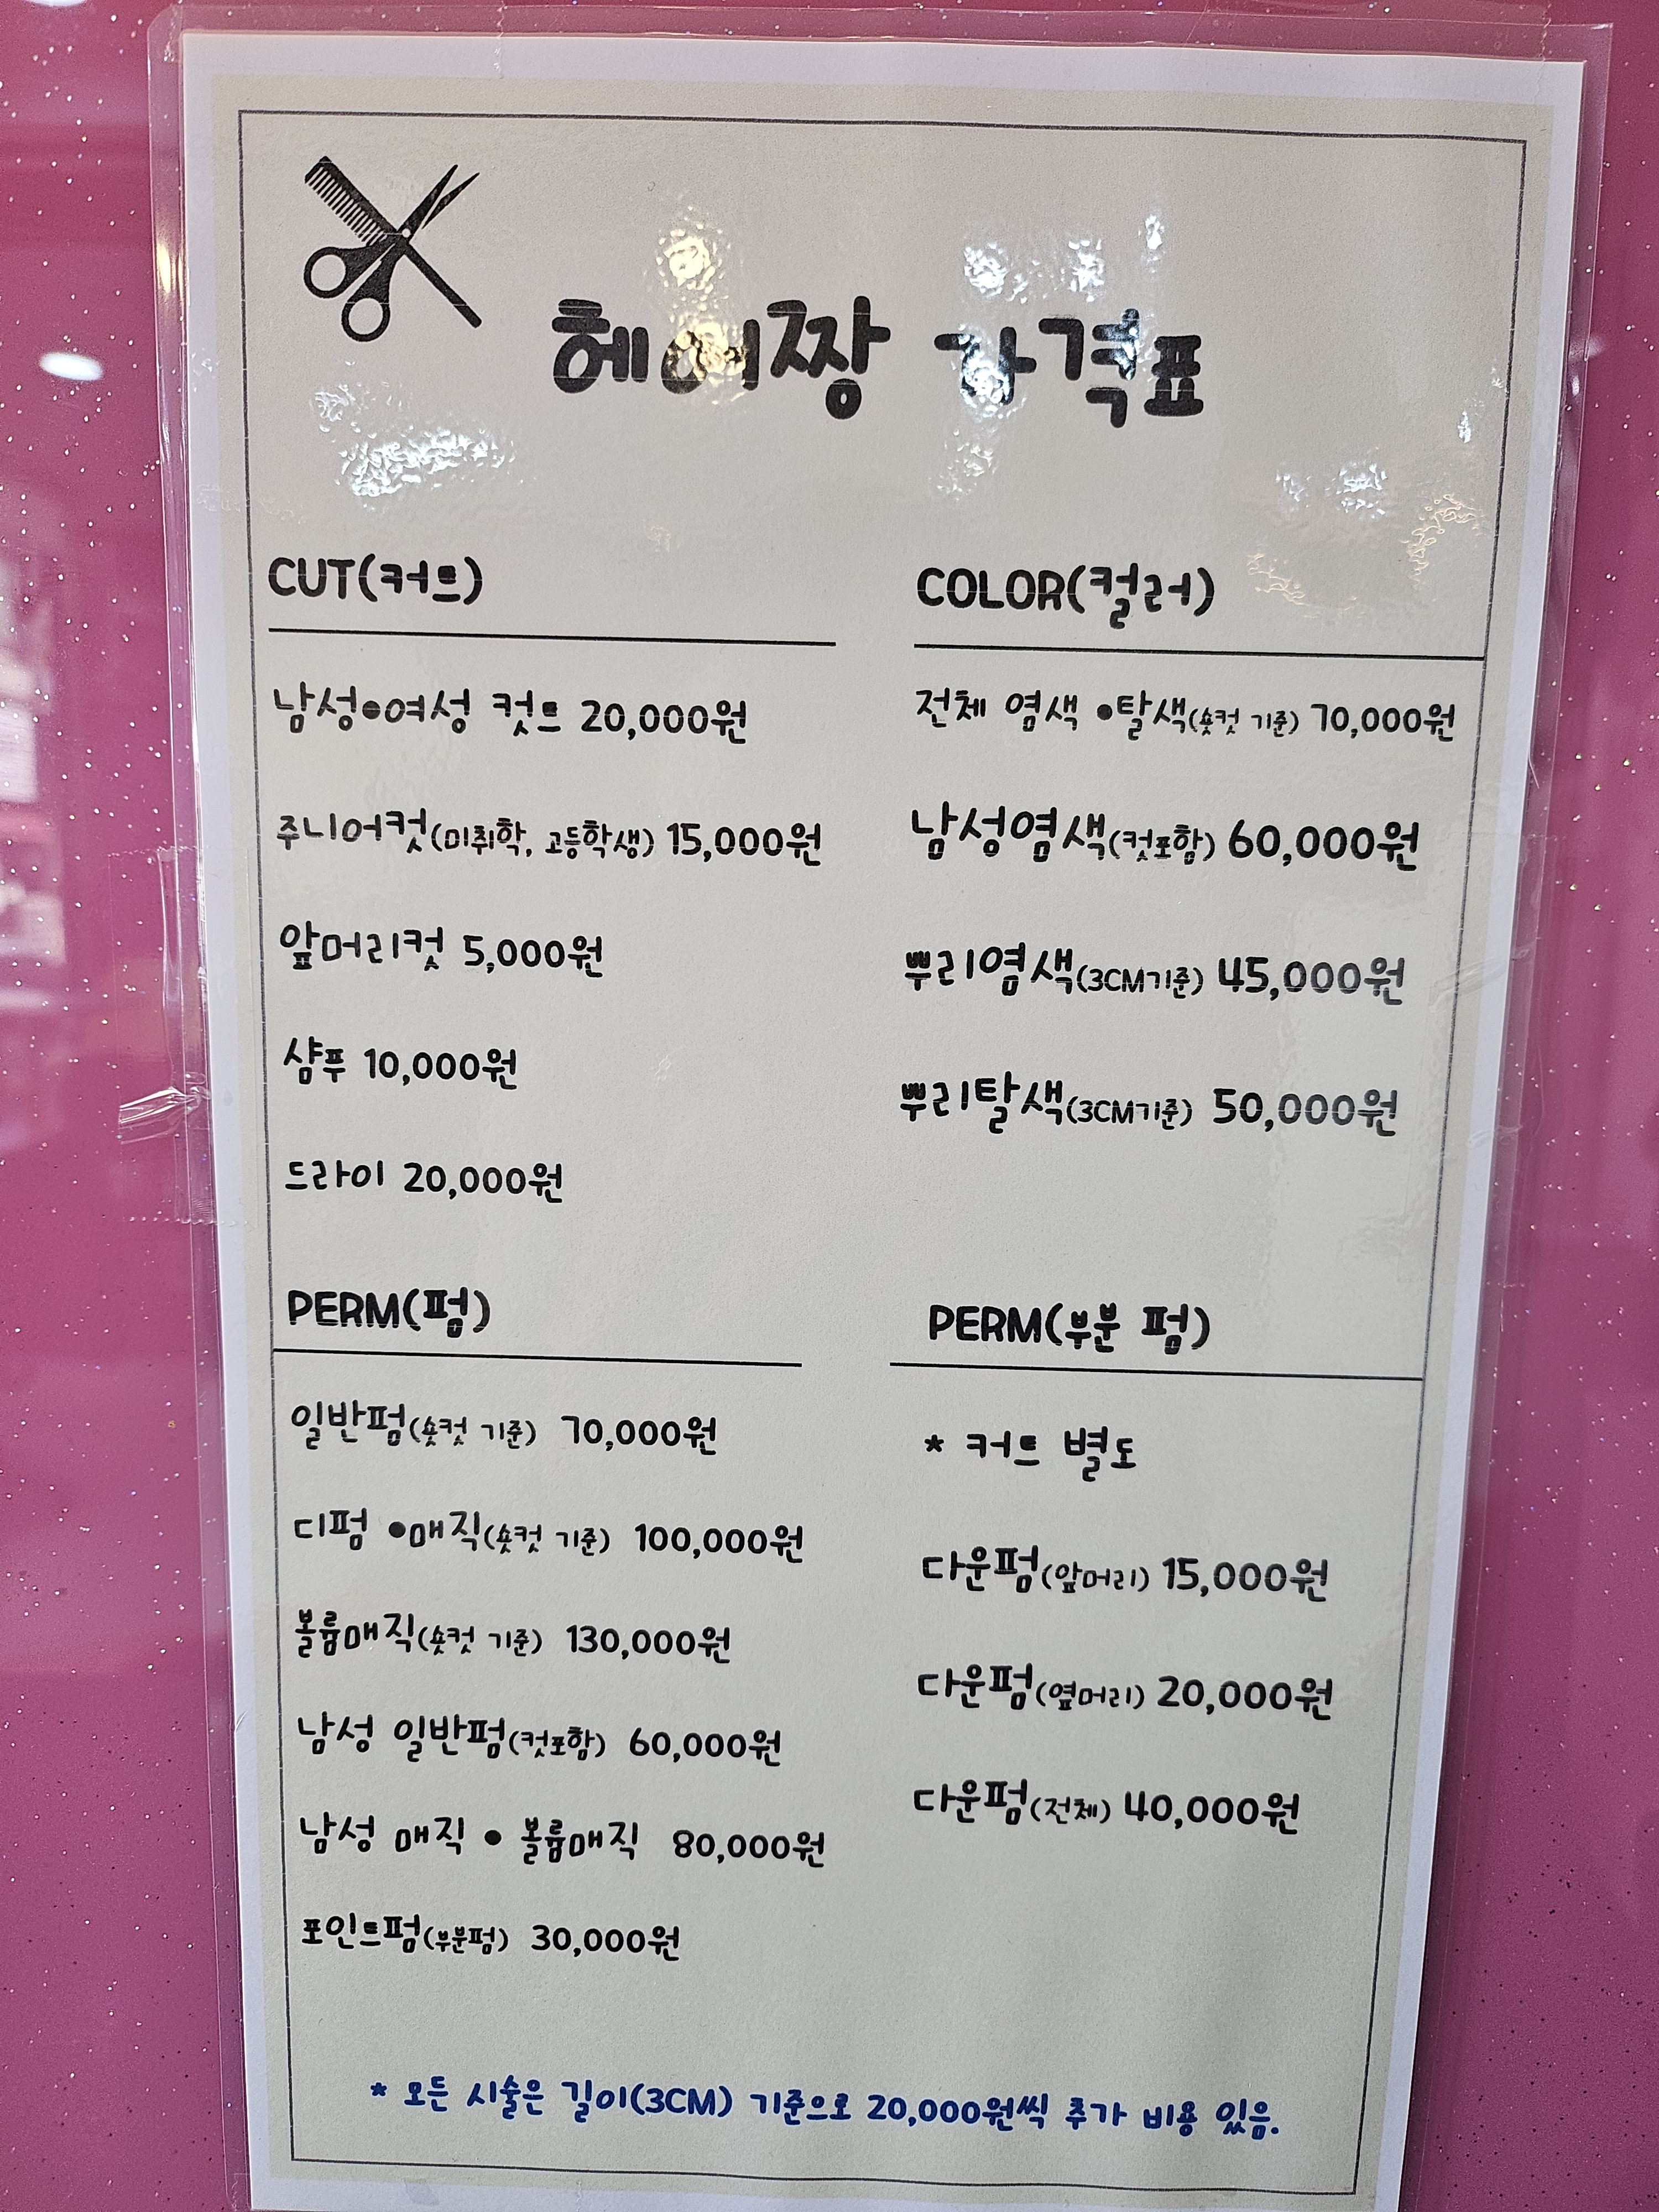 헤어짱 가격표
CUT(커트)
남성•여성 컷트 20,000원
주니어컷(미취학, 고등학생) 15,000원
앞머리컷 5,000원
샴푸 10,000원
드라이 20,000원
COLOR(컬러)
전체 염색 •탈색(숏컷 기준) 70,000원
남성염색(컷포함) 60,000원
뿌리염색(3CM기준) 45,000원
뿌리탈색(3CM기준) 50,000원
PERM(펌)
일반펌(숏컷 기준) 70,000원
디펌 •매직(숏컷 기준) 100,000원
볼륨매직(숏컷 기준) 130,000원
남성 일반펌(컷포함) 60,000원
남성 매직 • 볼륨매직 80,000원
포인트펌(부분펌) 30,000원
PERM(부분 펌)
* 커트 별도
다운펌(앞머리) 15,000원
다운펌(옆머리) 20,000원
다운펌(전체) 40,000원
* 모든 시술은 길이(3CM) 기준으로 20,000원씩 추가 비용 있음.